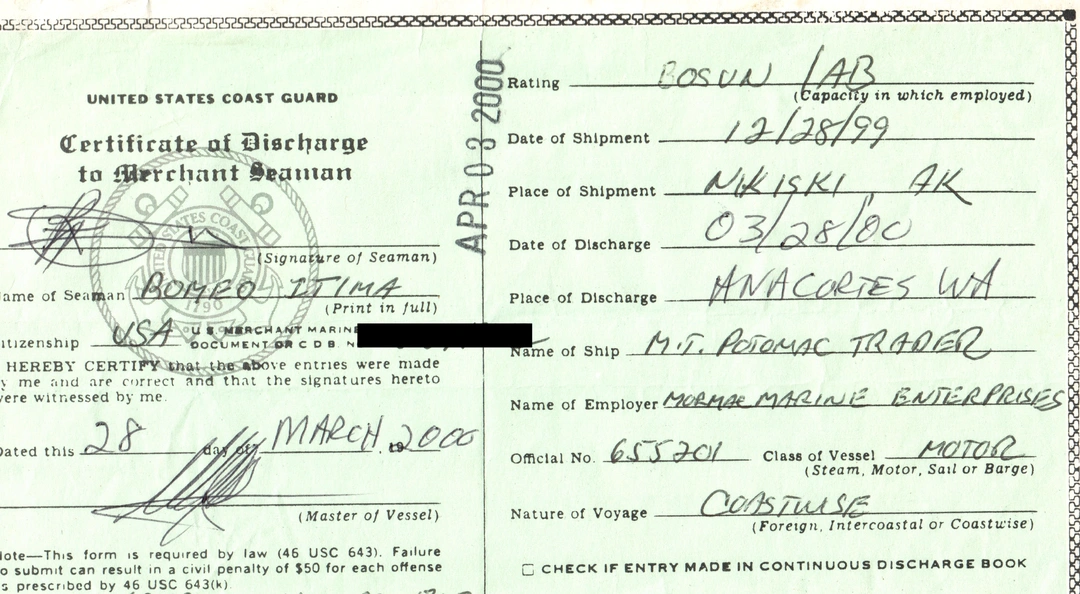 UNITED STATES COAST GUARD
Certificate of Discharge
to Merchant Seaman
(Signature of Seaman)
ame of Seaman ROMEO ITIMA
(Print in full)
itizenship USA U.S. MERCHANT MARINE
DOCUMENT OR C D B. N
HEREBY CERTIFY that the above entries were made
y me and are correct and that the signatures hereto
were witnessed by me.
Dated this 28 day of MARCH, 19 2000
(Master of Vessel)
Note—This form is required by law (46 USC 643). Failure
o submit can result in a civil penalty of $50 for each offense
s prescribed by 46 USC 643(k).
APR 03 2000
Rating BOSUN / AB
(Capacity in which employed)
Date of Shipment 12/28/99
Place of Shipment NIKISKI, AK
Date of Discharge 03/28/00
Place of Discharge ANACORTES WA
Name of Ship M.T. POTOMAC TRADER
Name of Employer MORMAC MARINE ENTERPRISES
Official No. 655201 Class of Vessel MOTOR
(Steam, Motor, Sail or Barge)
Nature of Voyage COASTWISE
(Foreign, Intercoastal or Coastwise)
CHECK IF ENTRY MADE IN CONTINUOUS DISCHARGE BOOK
UNITED STATES COAST GUARD
1790